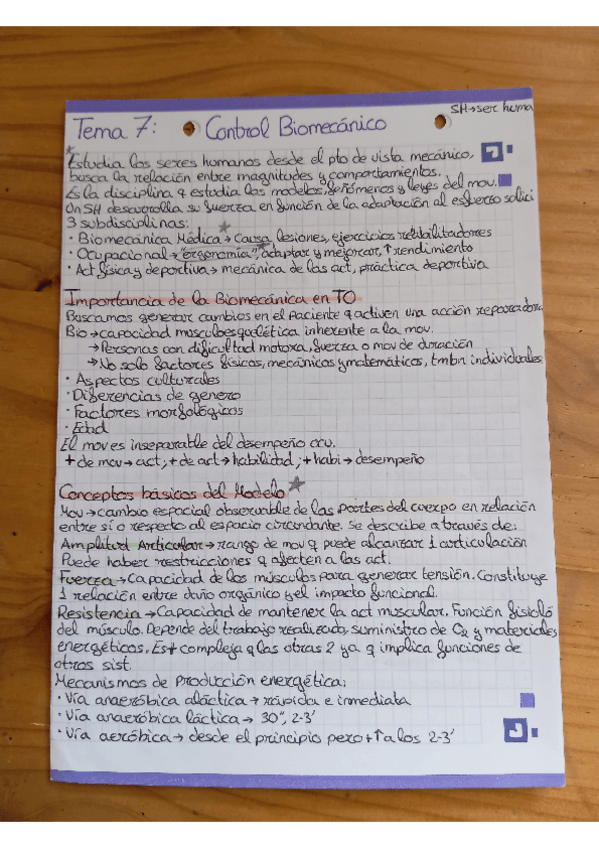 SH→ser huma
Tema 7: Control Biomecánico
Estudia los seres humanos desde el pto de vista mecánico,
busca la relación entre magnitudes y comportamientos.
Es la disciplina q estudia los modelos, fenómenos y leyes del mov.
Un SH desarrolla su fuerza en función de la adaptación al esfuerzo solici
3 subdisciplinas:
· Biomecánica Médica→ Causa lesiones, ejercicios rehabilitadores
· Ocupacional→"ergonomia", adaptar y mejorar, ↑rendimiento
· Act física y deportiva→ mecánica de las act, práctica deportiva
Importancia de la Biomecánica en TO
Buscamos generar cambios en el paciente q activen una acción reparadora
Bio→capacidad musculoesquelética inherente a la mov.
→Personas con dificultad motora, fuerza o mov de duración
→No solo factores físicos, mecánicos y matemáticos, tmbn individuales
· Aspectos culturales
· Diferencias de genero
· Factores morfológicos
· Edad
El mov es inseparable del desempeño ocu.
+ de mov→ act, + de act→ habilidad, + habi→ desempeño
Conceptos básicos del Modelo
Mov→cambio espacial observable de las partes del cuerpo en relación
entre sí o respecto al espacio circundante. Se describe a través de:
Amplitud Articular→ rango de mov q puede alcanzar 1 articulación
Puede haber restricciones q afecten a las act.
Fuerza→Capacidad de los músculos para generar tensión. Constituye
1 relación entre daño orgánico y el impacto funcional.
Resistencia→Capacidad de mantener la act muscular. Función fisioló
del músculo. Depende del trabajo realizado, suministro de O2 y materiales
energéticos. Es + compleja q las otras 2 ya q implica funciones de
otros sist.
Mecanismos de producción energética:
· Vía anaeróbica aláctica→ rápida e inmediata
· Vía anaeróbica láctica→ 30", 2-3'
· Vía aeróbica→ desde el principio pero +↑ a los 2-3'